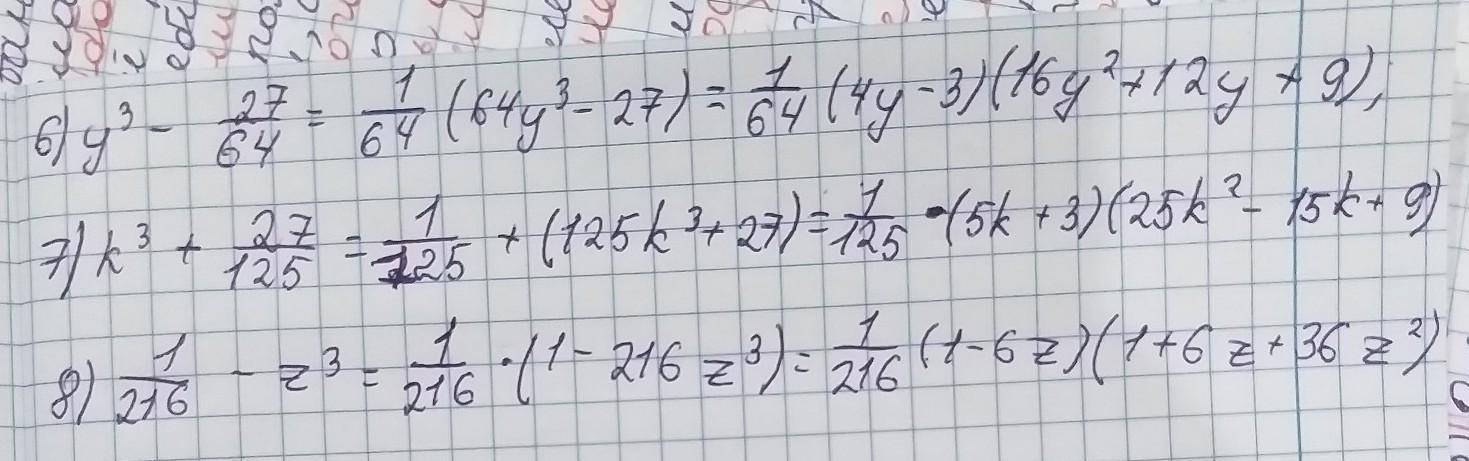 6) y³ - 27/64 = 1/64 (64y³ - 27) = 1/64 (4y - 3)(16y² + 12y + 9),
7) k³ + 27/125 = 1/125 + (125k³ + 27) = 1/125 · (5k + 3)(25k² - 15k + 9)
8) 1/216 - z³ = 1/216 · (1 - 216 z³) = 1/216 (1 - 6z)(1 + 6z + 36 z²)